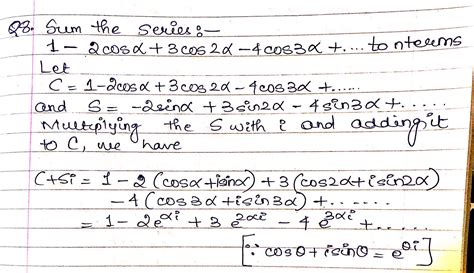 Q8. Sum the series:-
1 - 2cosα + 3cos2α - 4cos3α + .... to n terms
Let
C = 1-2cosα + 3cos2α - 4cosα + .....
and S = -2sinα + 3sin2α - 4sin3α + .....
Multiplying the S with i and adding it
to C, we have
C+Si = 1 - 2(cosα+isinα) + 3(cos2α+isin2α)
- 4(cos3α+isin3α) + ......
= 1 - 2e^{αi} + 3e^{2αi} - 4e^{3αi} + .....
[∵ cosθ + isinθ = e^{θi}]